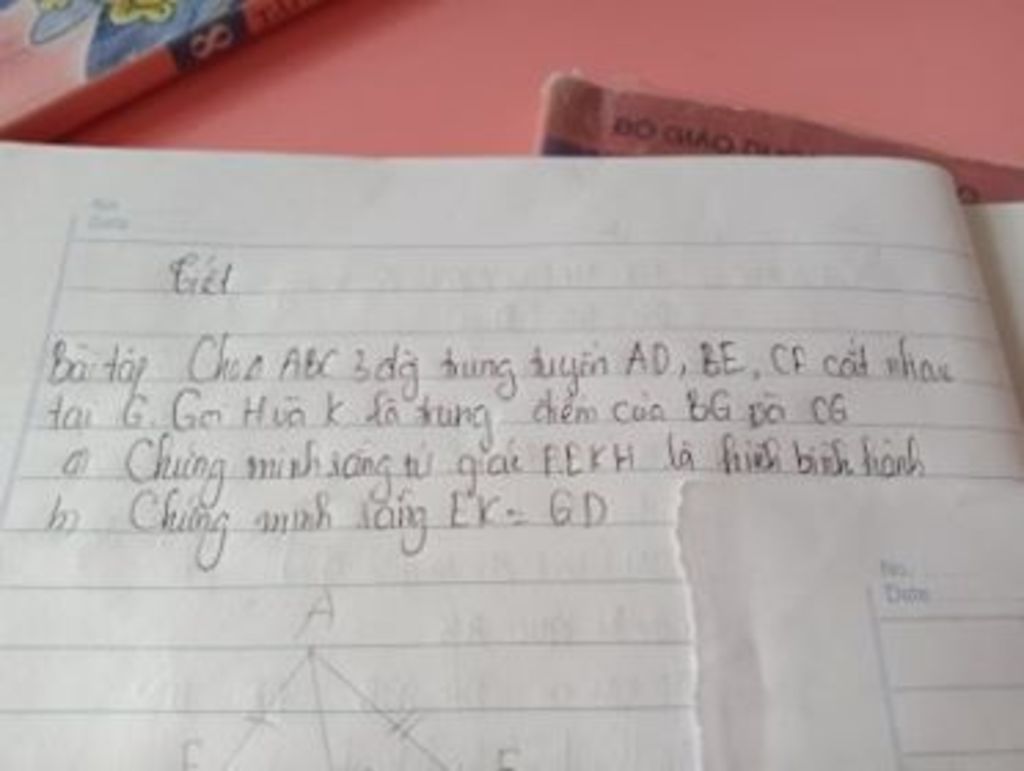 8
BỘ GIÁO DỤC
No.
Date
Bài tập Cho Δ ABC 3 đg trung tuyến AD, BE, CF cắt nhau
tại G. Gọi H và K là trung điểm của BG và CG
a) Chứng minh rằng tứ giác FEKH là hình bình hành
b) Chứng minh rằng EK = GD
No.
Date
A
F
E